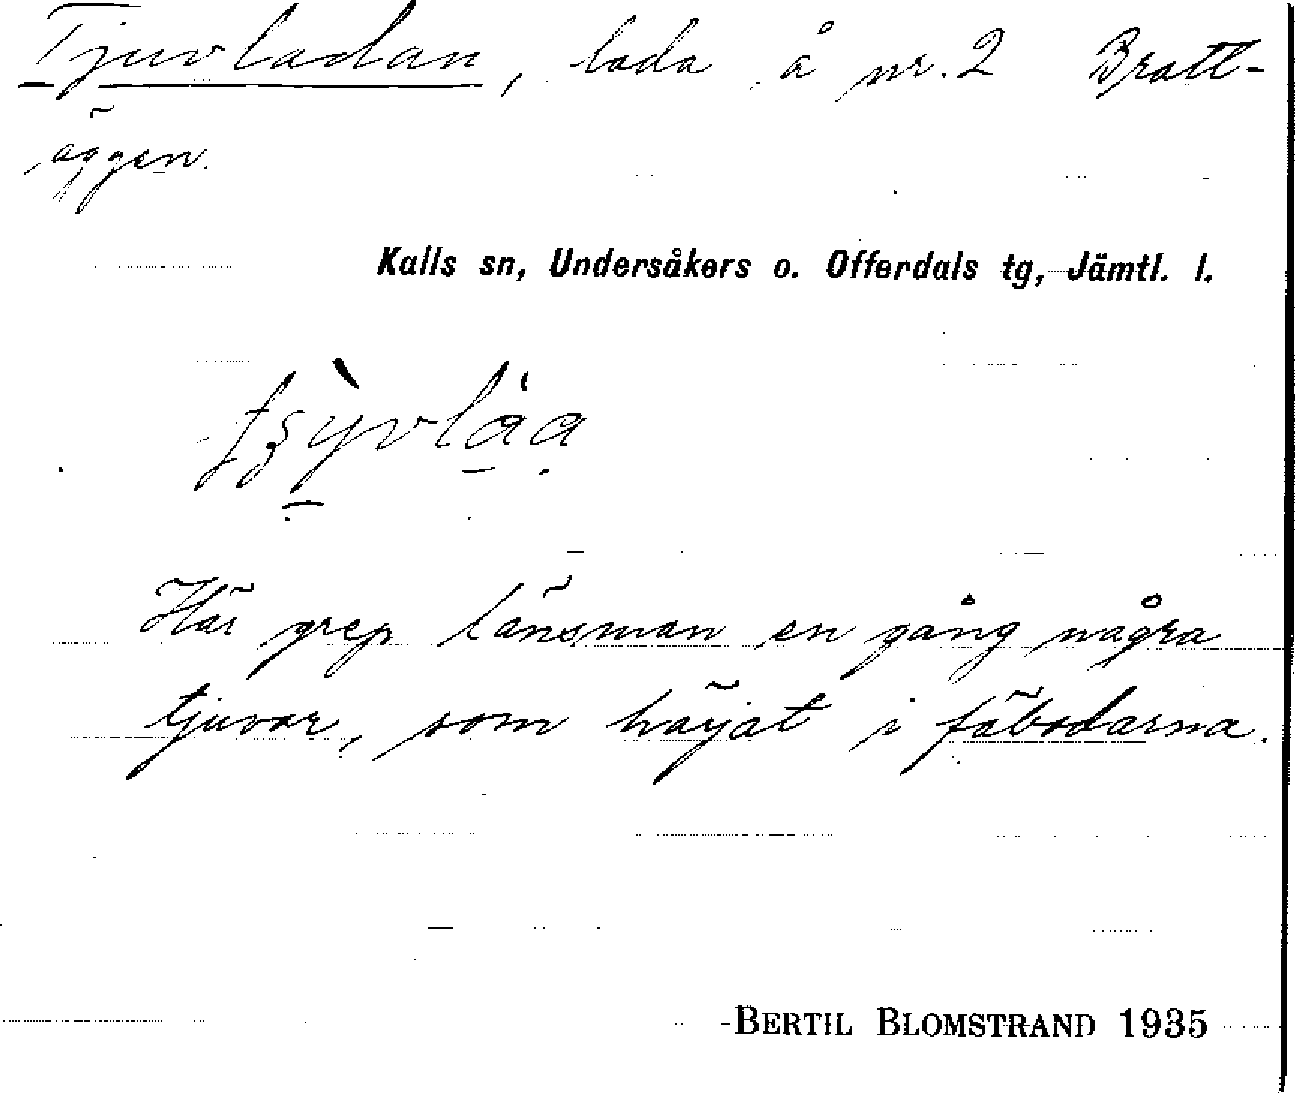 Tjuvladan, lada å nr. 2 Brattl-
äggen.
Kalls sn, Undersåkers o. Offerdals tg, Jämtl. l.
Här grep länsman en gång några
tjuvar, som härjat i fäbodarna.
BERTIL BLOMSTRAND 1935